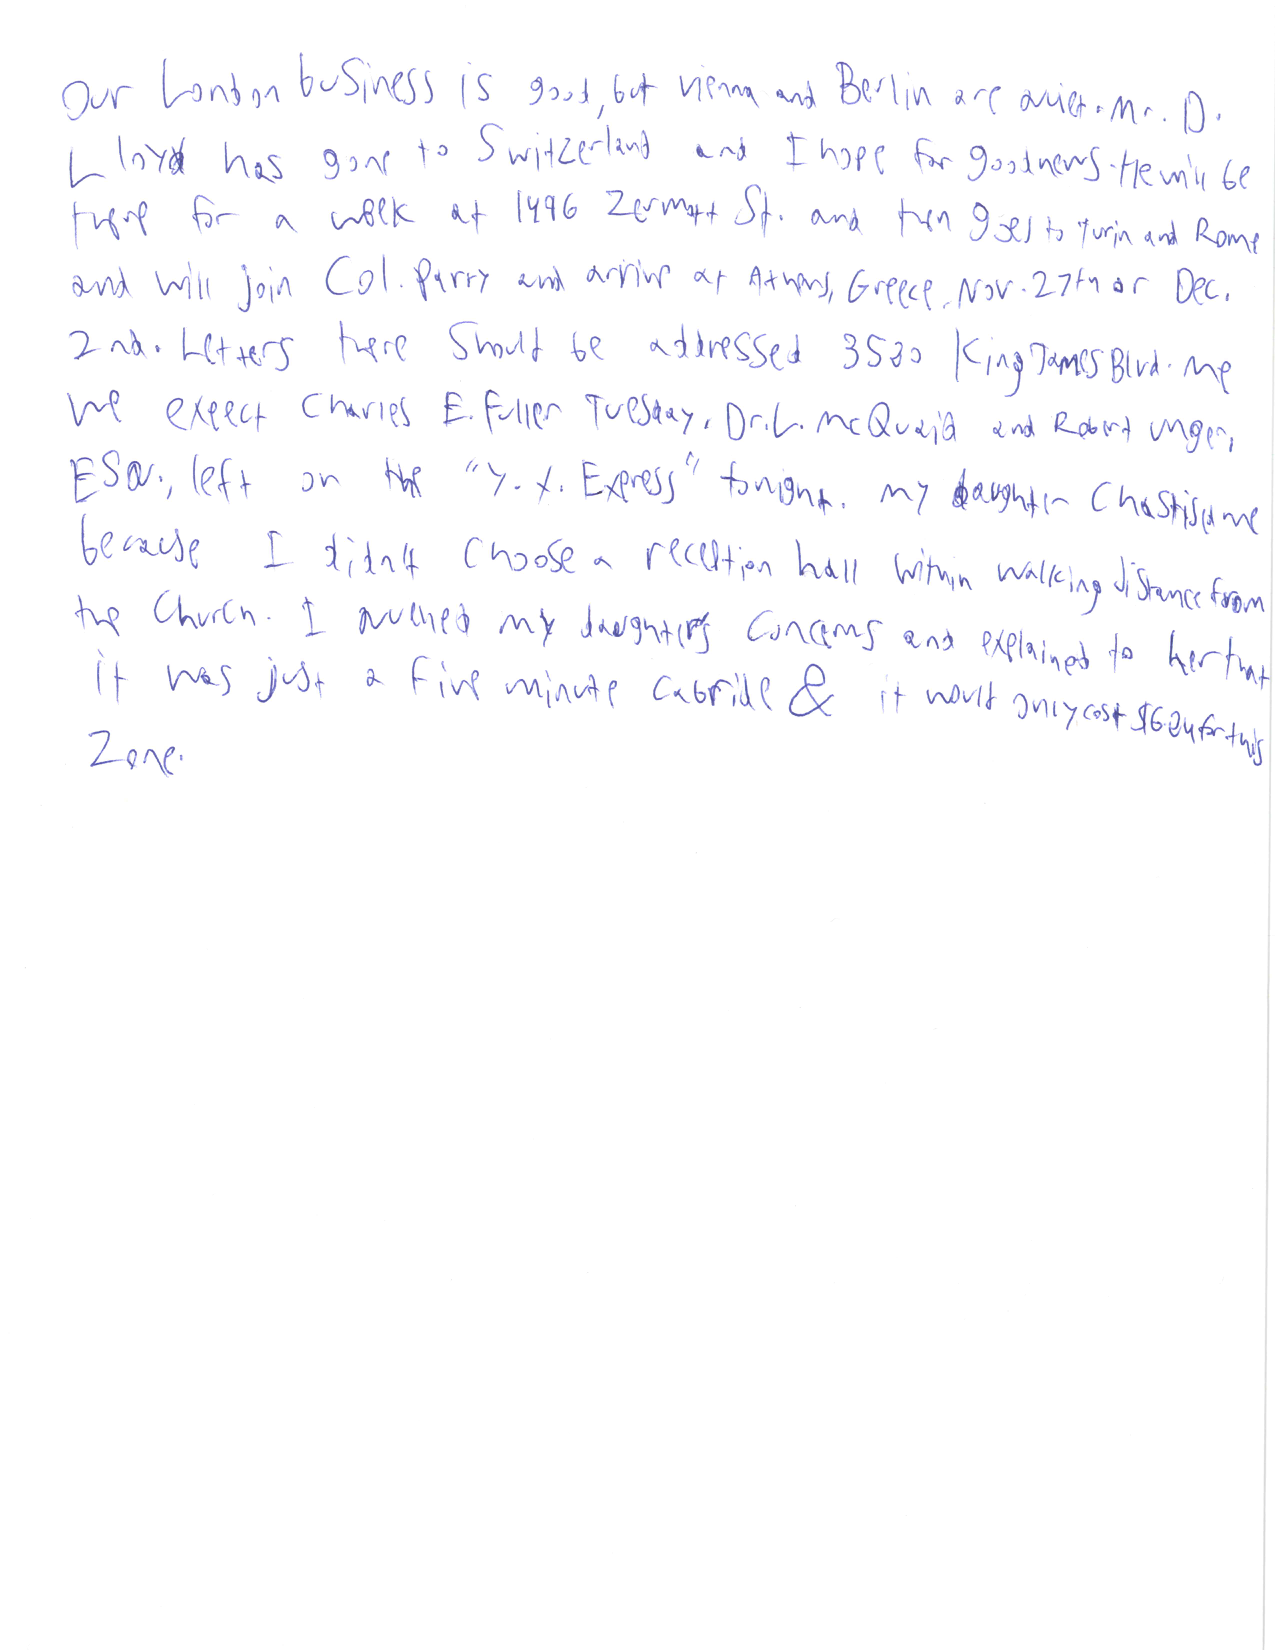 Our London business is good, but Vienna and Berlin are quiet. Mr. D.
Lloyd has gone to Switzerland and I hope for good news. He will be
there for a week at 1496 Zermott St. and then goes to Turin and Rome
and will join Col. Parry and arrive at Athens, Greece, Nov. 27th or Dec.
2nd. Letters there should be addressed 3580 King James Blvd. me
we expect Charles E. Fuller Tuesday. Dr. L. McQuaid and Robert Unger,
ESQ., left on the "Y.X. Express" tonight. My daughter Chastised me
because I didn't choose a reception hall within walking distance from
the Church. I quelled my daughter's concerns and explained to her that
it was just a five minute cab ride & it would only cost $6.84 for this
Zone.